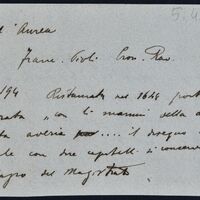 5.4
d'Aurea
Franc. Poli Cron. Rav.
194 Restaurata nel 1649 port
rata "con li marmi della
ta averia .... il disegno
le con due capitelli si conserva
del Magistrato